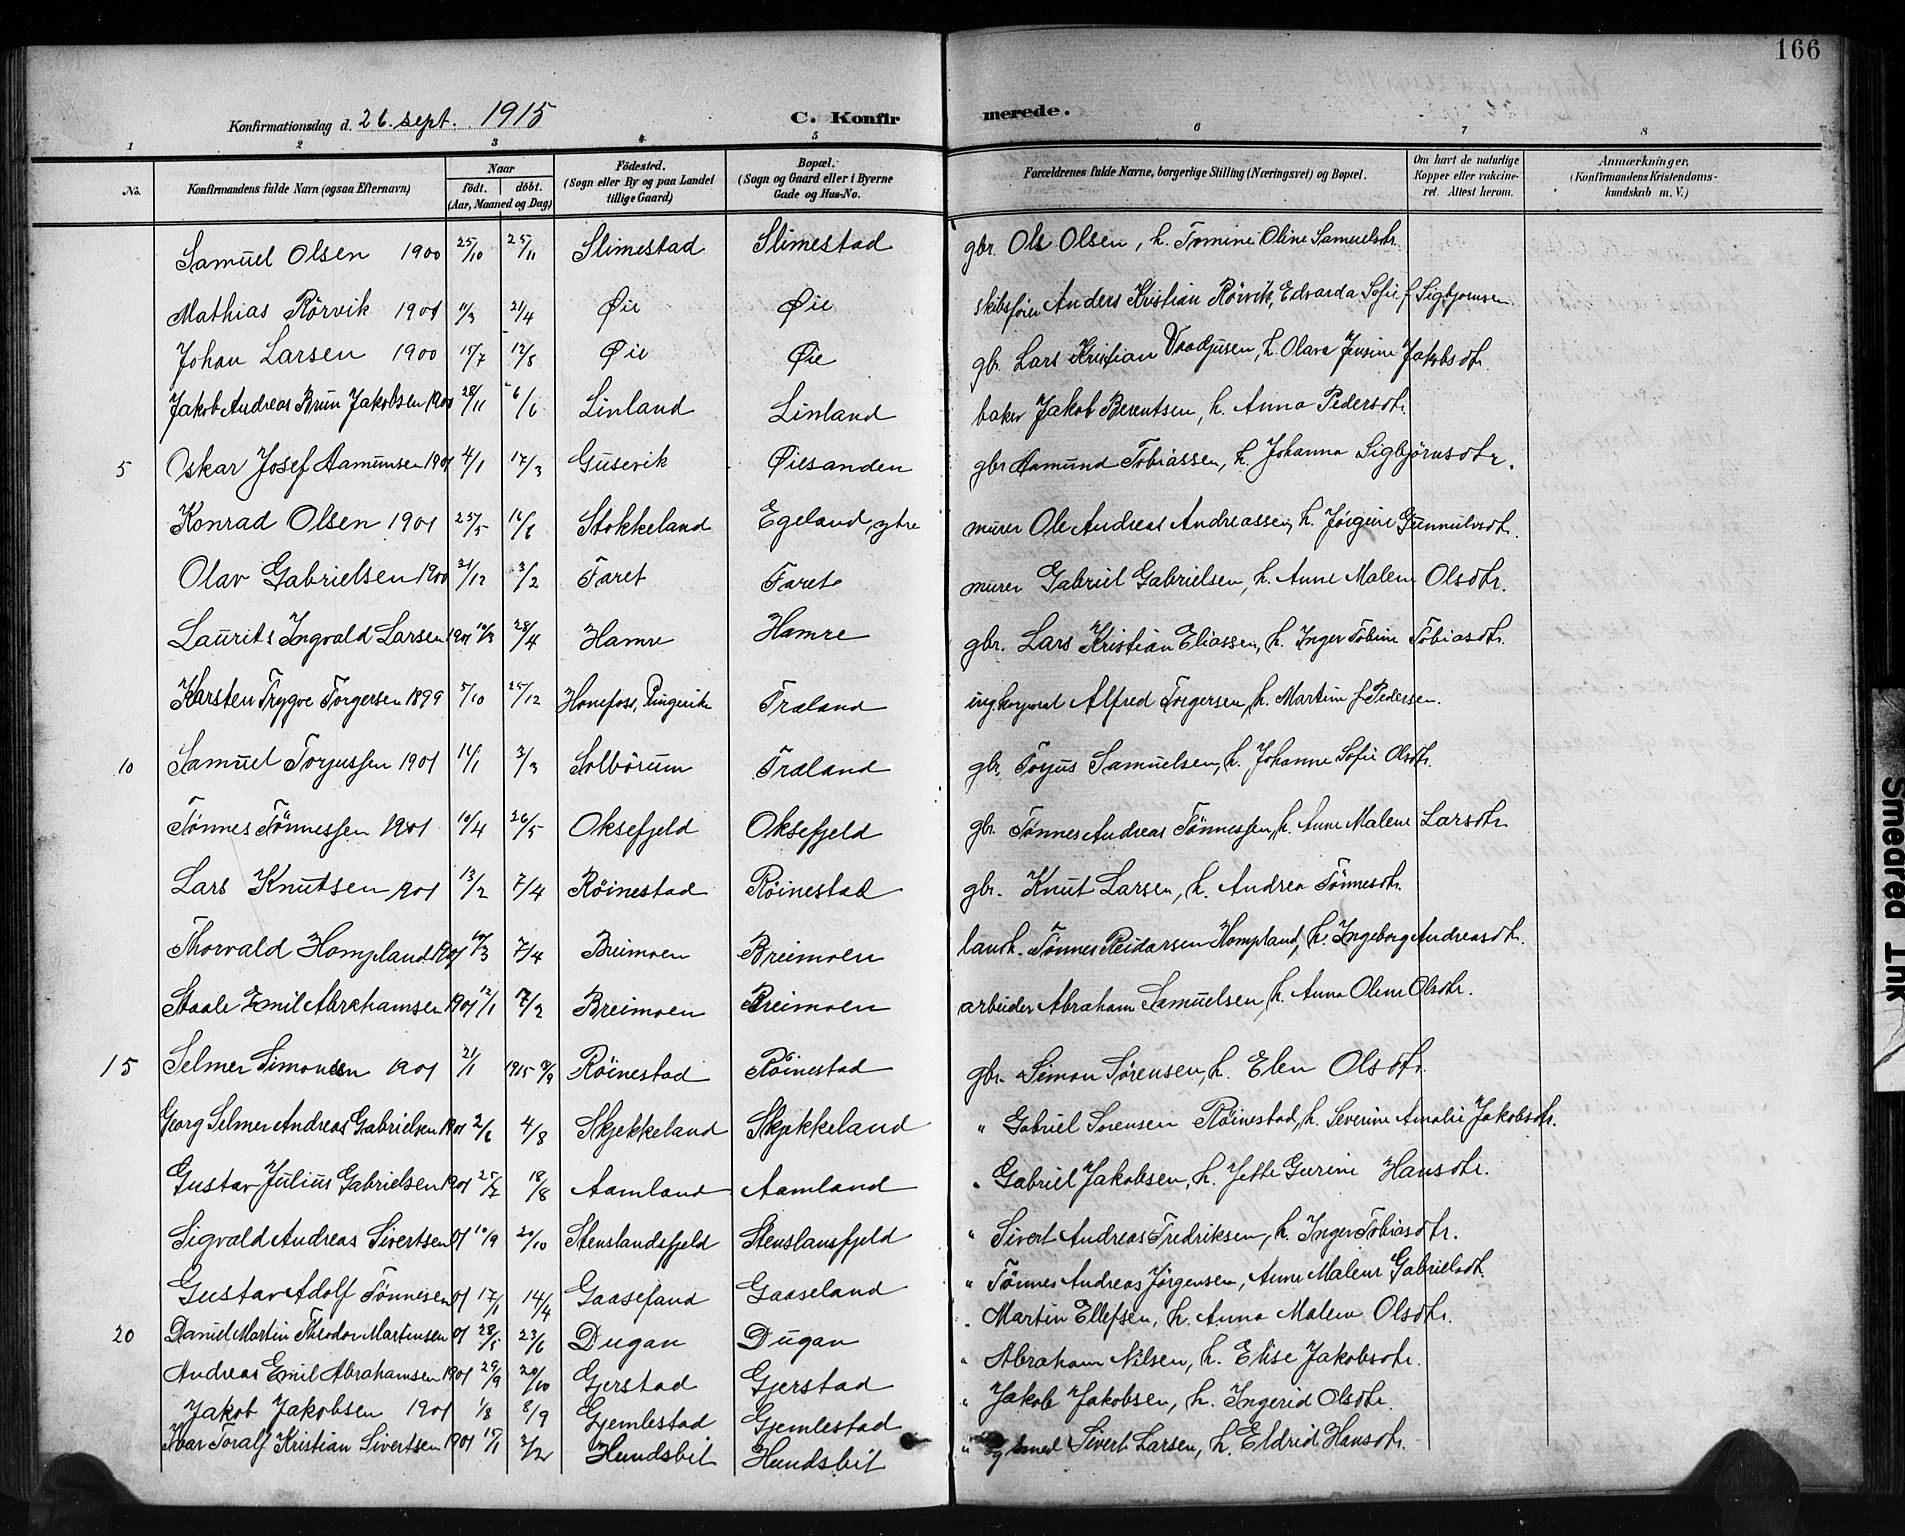 166
Konfirmationsdag d. 26. sept. 1915 C. Konfirmerede.
1 2 3 4 5 6 7 8
No. Konfirmandens fulde Navn (ogsaa Efternavn) Naar födt. döbt. (Aar, Maaned og Dag) Födested. (Sogn eller By og paa Landet tillige Gaard) Bopæl. (Sogn og Gaard eller i Byerne Gade og Hus-No. Forældrenes fulde Navne, borgerlige Stilling (Næringsvei) og Bopæl. Om havt de naturlige Kopper eller vakcineret. Attest herom. Anmærkninger. (Konfirmandens Kristendomskundskab m. V.)
Samuel Olsen 1900 25/10 25/11 Slimestad Slimestad gbr. Ole Olsen, h. Tomine Oline Samuelsdtr.
Mathias Rörvik 1901 11/3 21/4 Øie Øie skibsfører Anders Kristian Rörvik, Edvarda Sofie f Sigbjornsen
Johan Larsen 1900 15/7 12/8 Øie Øie gbr. Lars Kristian, h. Olava Jensine Jakobsdtr.
Jakob Andreas Brun Jakobsen 1900 28/11 6/6 Linland Linland baker Jakob Berentsen, h. Anna Pedersdtr.
5 Oskar Josef Aamunsen 1901 4/1 17/3 Gusevik Øiesanden gbr Aamund Tobiassen, h. Johanna Sigbjörnsdtr.
Konrad Olsen 1901 25/5 16/6 Stokkeland Egeland, ytre murer Ole Andreas Andreassen, h. Jörgine Gunnulvsdtr.
Olav Gabrielsen 1900 31/12 3/2 Faret Faret murer Gabriel Gabrielsen, h. Anne Malene Olsdtr.
Laurits Ingvald Larsen 1901 10/3 28/4 Hamre Hamre gbr. Lars Kristian Eliassen, h. Inger Tobine Tobiasdtr.
Karsten Trygve Torgersen 1899 5/10 25/12 Hønefoss, Ringerike Træland Alfred Torgersen, h. Martine f Pedersen.
10 Samuel Torjussen 1901 16/1 3/3 Solbörum Træland gbr. Torjus Samuelsen, h. Johanne Sofie Olsdtr.
Tönnes Tönnessen 1901 10/4 26/5 Oksefjeld Oksefjeld gbr. Tönnes Andreas Tönnessen, h. Anne Malene Larsdtr.
Lars Knutsen 1901 13/2 7/4 Röinestad Röinestad gbr. Knut Larsen, h. Andrea Tönnesdtr.
Thorvald Hompland 1901 10/3 7/4 Breimoen Breimoen landh. Tönnes Reidarsen Hompland, h. Ingeborg Andreasdtr.
Staale Emil Abrahamsen 1901 12/1 7/2 Breimoen Breimoen arbeider Abraham Samuelsen, h. Anna Oline Olsdtr.
15 Selmer Simonsen 1901 21/1 1915 Röinestad Röinestad gbr. Simon Sörensen, h. Elen Olsdtr.
Georg Selmer Andreas Gabrielsen 1901 2/6 4/8 Skjekkeland Skjekkeland " Gabriel Sorensen Röinestad, h. Severine Amalie Jakobsdtr.
Gustav Julius Gabrielsen 1901 25/7 18/8 Aamland Aamland " Gabriel Jakobsen, h. Jette Gurine Hansdtr.
Sigvald Andreas Sivertsen 01 10/9 20/10 Stenslandsfjeld Stenslansfjeld " Sivert Andreas Fredriksen, h. Inger Tobiasdtr.
Gustav Adolf Tönnesen 01 17/1 14/4 Gaaseland Gaaseland " Tönnes Andreas Jörgensen, Anne Malene Gabrielsdtr.
20 Daniel Martin Theodor Martinsen 01 28/5 23/6 Dugan Dugan " Martin Ellefsen, h. Anna Malene Olsdtr.
Andreas Emil Abrahamsen 1901 29/9 20/10 Gjerstad Gjerstad " Abraham Nilsen, h. Elise Jakobsdtr.
Jakob Jakobsen 1901 1/8 8/9 Gjemlestad Gjemlestad " Jakob Jakobsen, h. Ingerid Olsdtr.
Ivar Toralf Kristian Sivertsen 1901 15/1 2/2 Hundsbit Hundsbit " og smed Sivert Larsen, h. Eldrid Hansdtr.
Smeared Ink